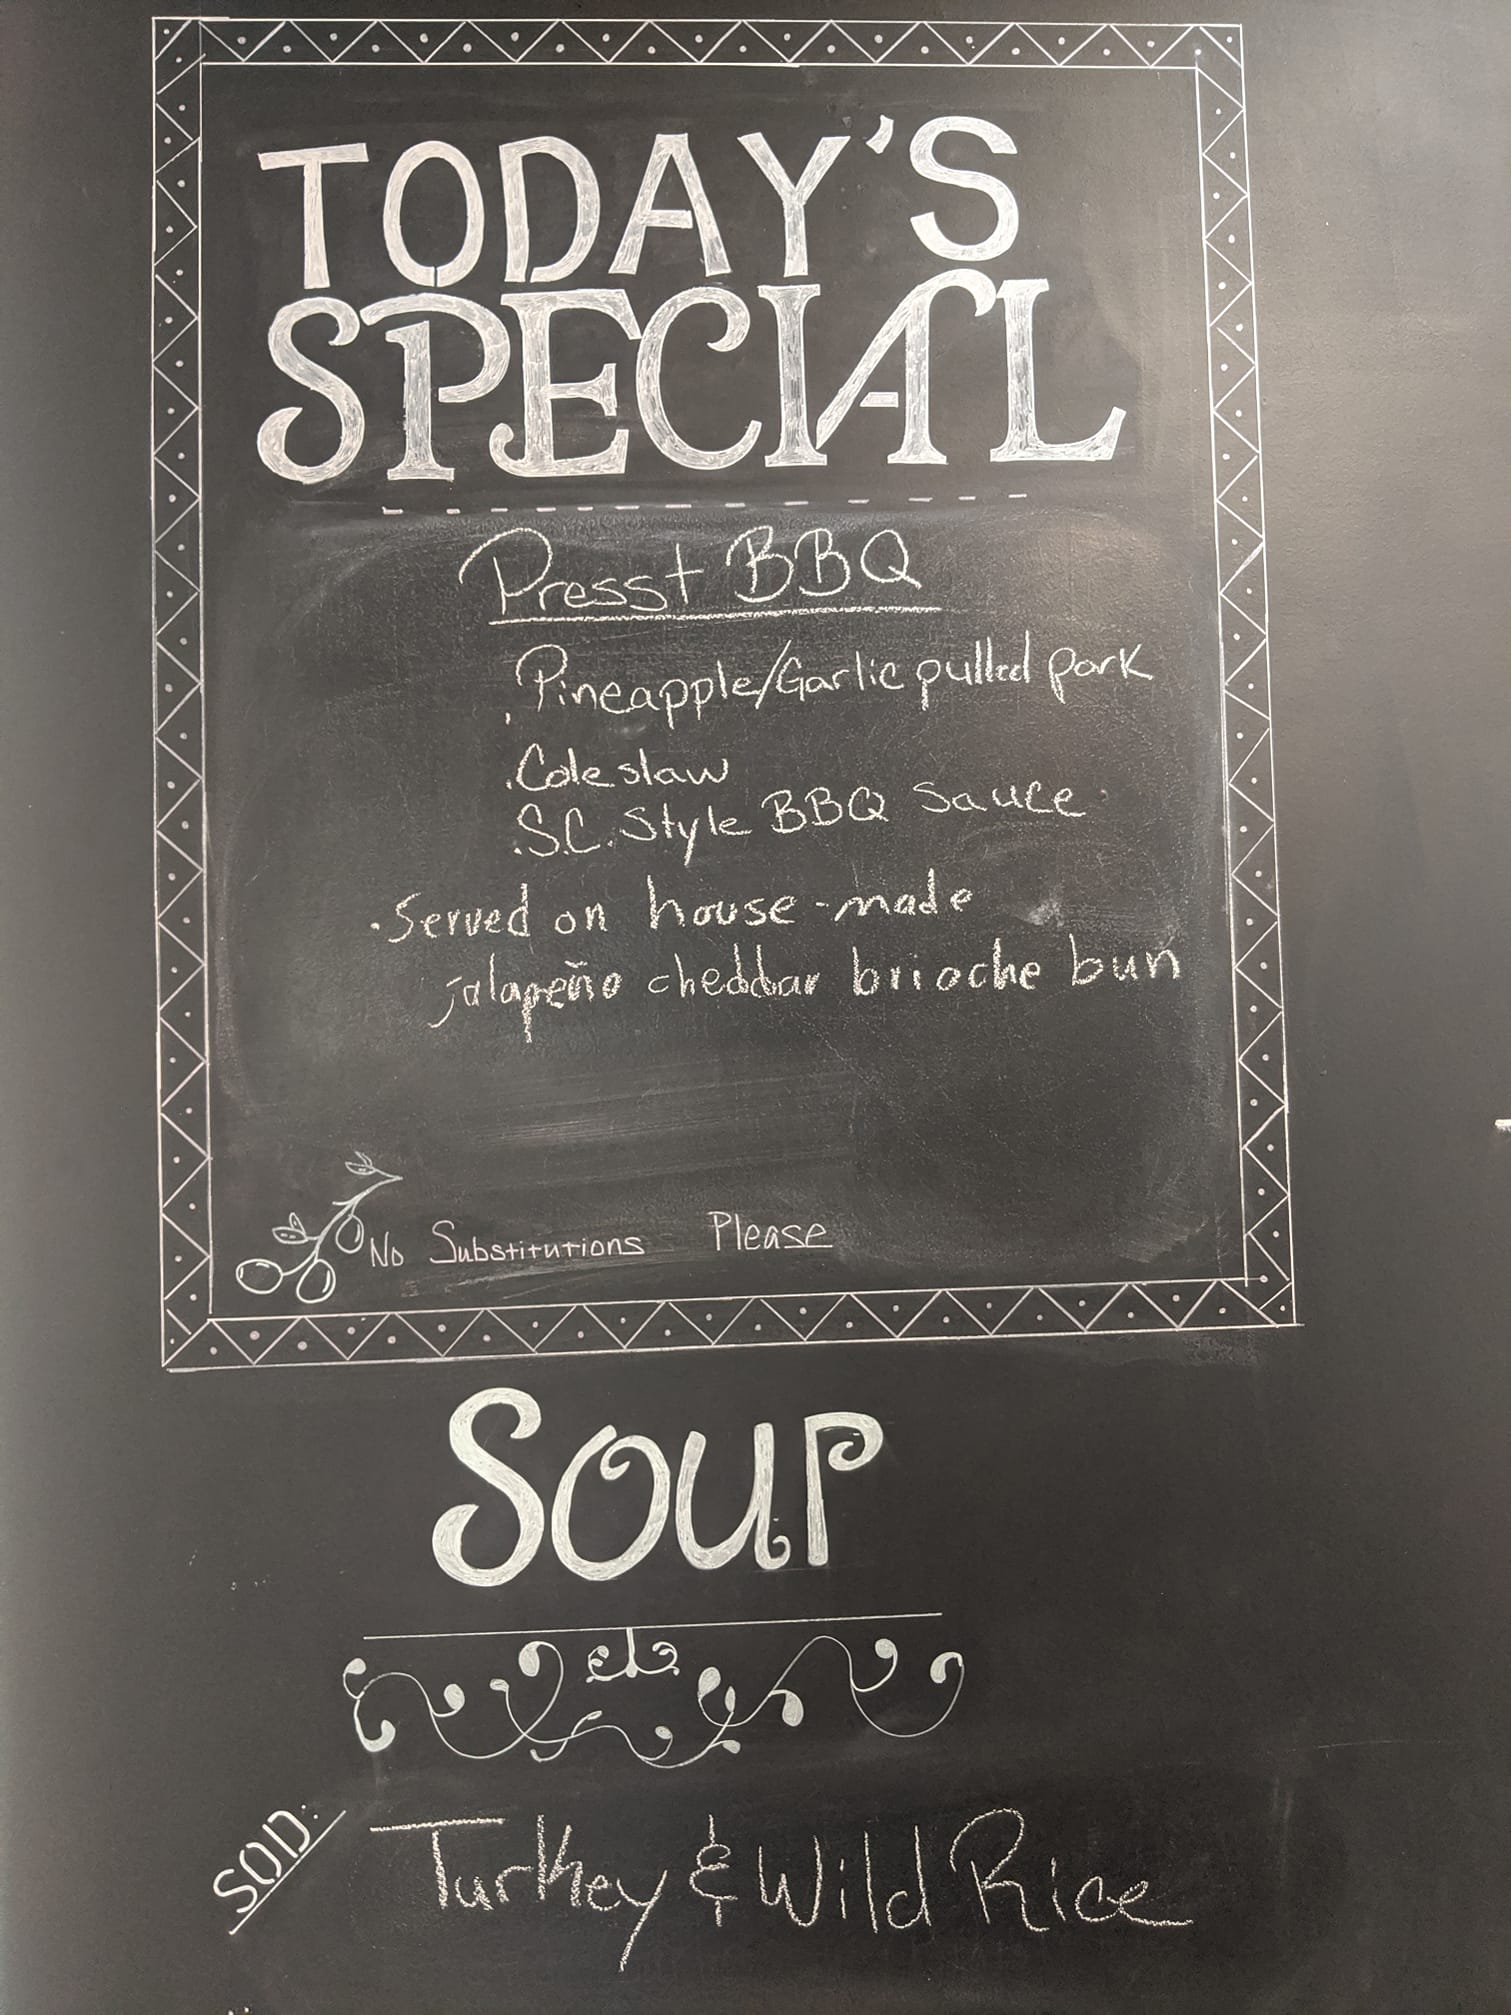 TODAY'S
SPECIAL
Presst BBQ
. Pineapple/Garlic pulled pork
. Coleslaw
. S.C. Style BBQ Sauce
. Served on house-made
jalapeño cheddar brioche bun
No Substitutions Please
SOUP
SOD:
Turkey & Wild Rice